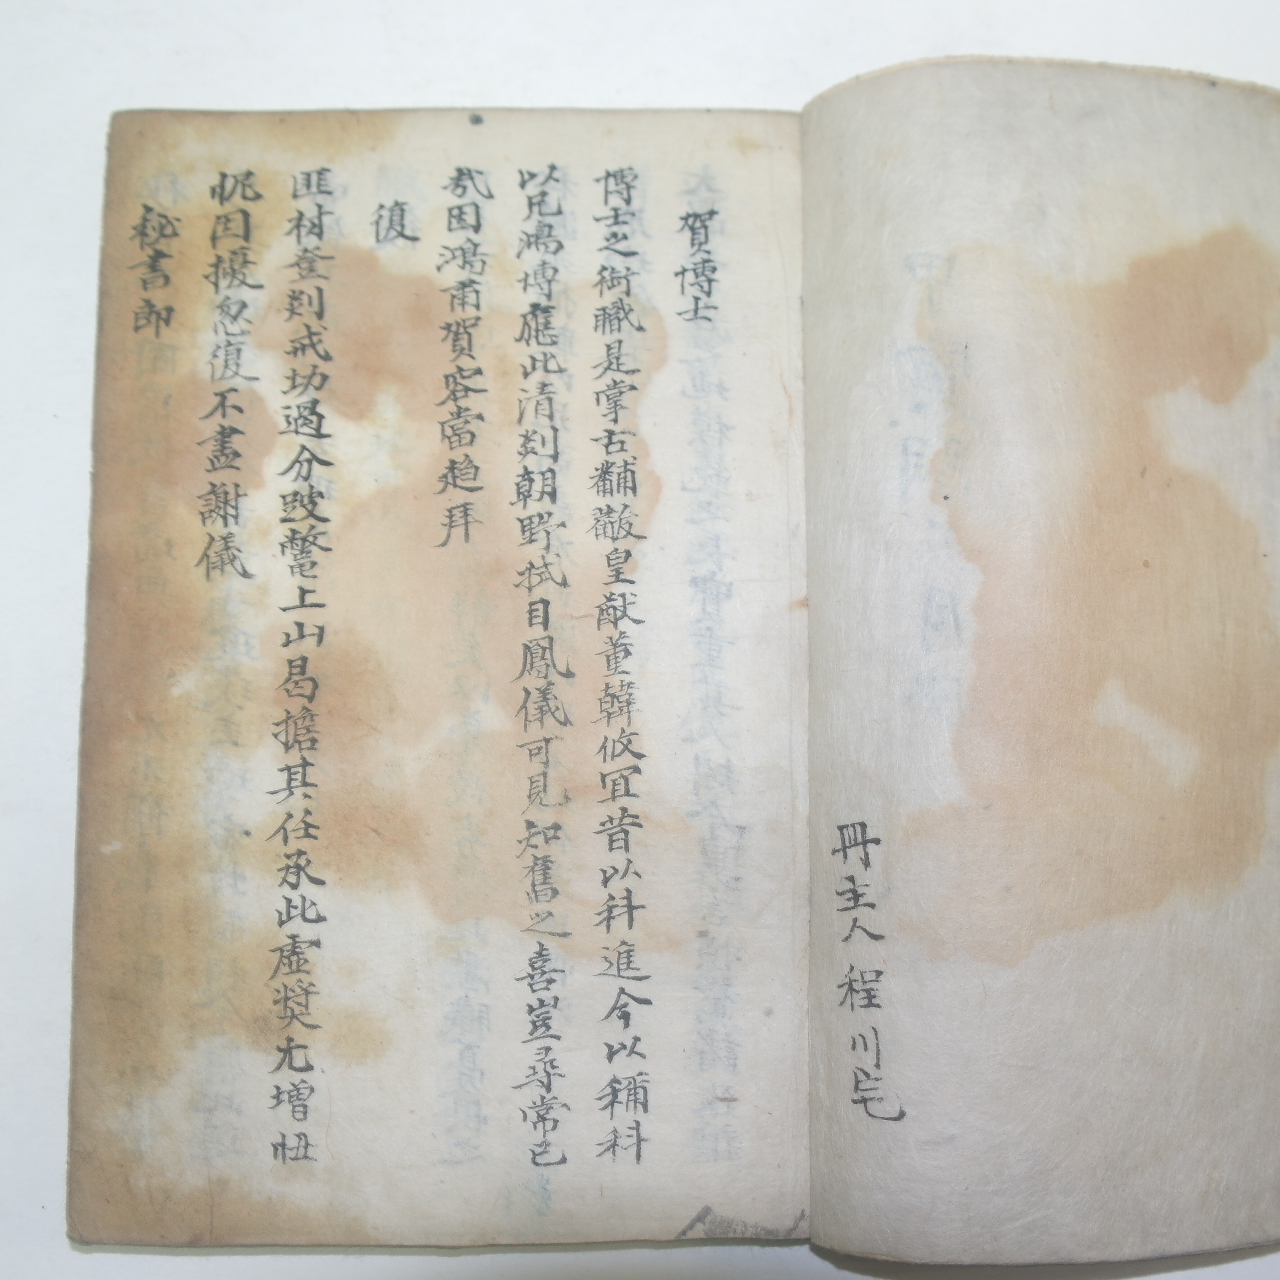 冊主人程川宅
賀博士
博士之銜職是掌古黼黻皇猷董韓攸冝昔以科進今以稱科
以兄鴻博應此清剡朝野拭目鳳儀可見知舊之喜豈尋常已
哉因鴻甫賀容當趍拜
復
匪材登剡戒切過分跛鼈上山曷擔其任承此虛奬尤增忸
怩因擾忽復不盡謝儀
秘書郎